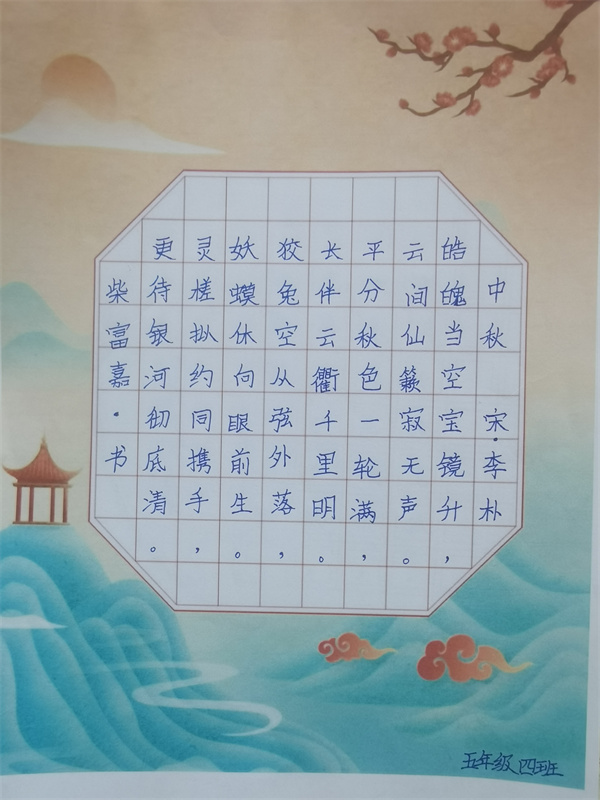 中秋 宋·李朴
皓魄当空宝镜升，
云间仙籁寂无声。
平分秋色一轮满，
长伴云衢千里明。
狡兔空从弦外落，
妖蟆休向眼前生。
灵槎拟约同携手，
更待银河彻底清。
柴富嘉·书
五年级四班